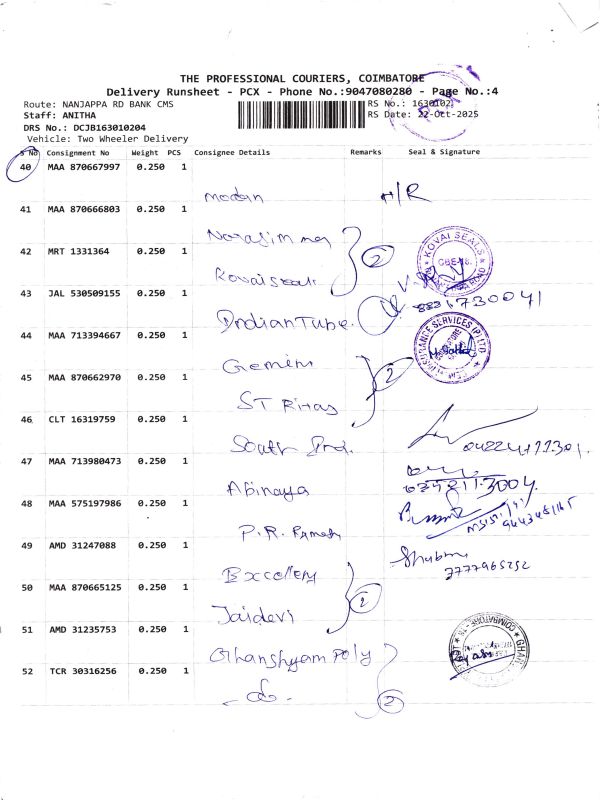 THE PROFESSIONAL COURIERS, COIMBATORE
Delivery Runsheet - PCX - Phone No.:9047080280 - Page No.:4
Route: NANJAPPA RD BANK CMS
RS No.: 1630102
Staff: ANITHA
RS Date: 22-Oct-2025
DRS No.: DCJB163010204
Vehicle: Two Wheeler Delivery
S No Consignment No Weight PCS Consignee Details Remarks Seal & Signature
40 MAA 870667997 0.250 1
H/R
41 MAA 870666803 0.250 1
42 MRT 1331364 0.250 1
2
KOVAI SEALS
43 JAL 530509155 0.250 1
Indian Tube
44 MAA 713394667 0.250 1
Gemini
2
45 MAA 870662970 0.250 1
ST
46 CLT 16319759 0.250 1
South Ind.
47 MAA 713980473 0.250 1
Abinaya
48 MAA 575197986 0.250 1
P.R. Ramesh
49 AMD 31247088 0.250 1
7777965252
50 MAA 870665125 0.250 1
2
Jaidevi
51 AMD 31235753 0.250 1
Ghanshyam Poly
52 TCR 30316256 0.250 1
do.
2